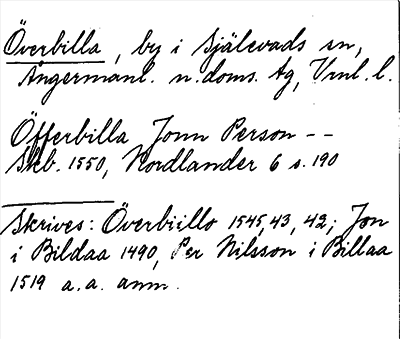 Överbilla, by i Själevads sn,
Ångermanl. n. doms. tg, Vrnl. l.
Öfferbilla Jonn Person --
Skb. 1550, Nordlander 6 s. 190
Skrives: Överbiillo 1545, 43, 42; Jon
i Bildaa 1490, Per Nilsson i Billaa
1519 a.a. anm.